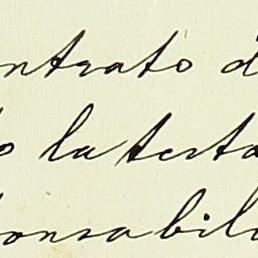 ntrato d
o la testa
onsabil